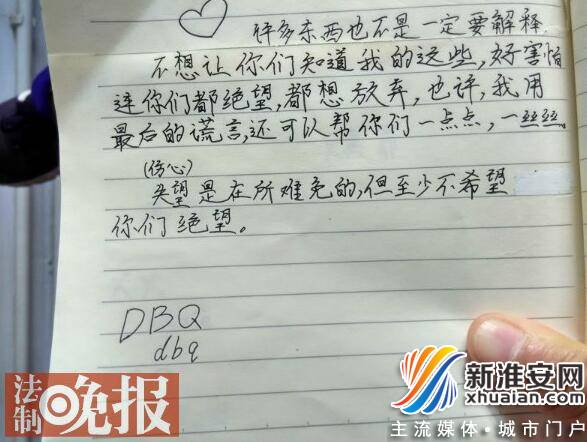 许多东西也不是一定要解释.
不想让你们知道我的这些,好害怕
连你们都绝望,都想放弃,也许,我用
最后的谎言,还可以帮你们一点点,一丝丝.
(伤心)
失望是在所难免的,但至少不希望
你们绝望。
DBQ
dbq
法制晚报
新淮安网
xhuaian.com
主流媒体·城市门户